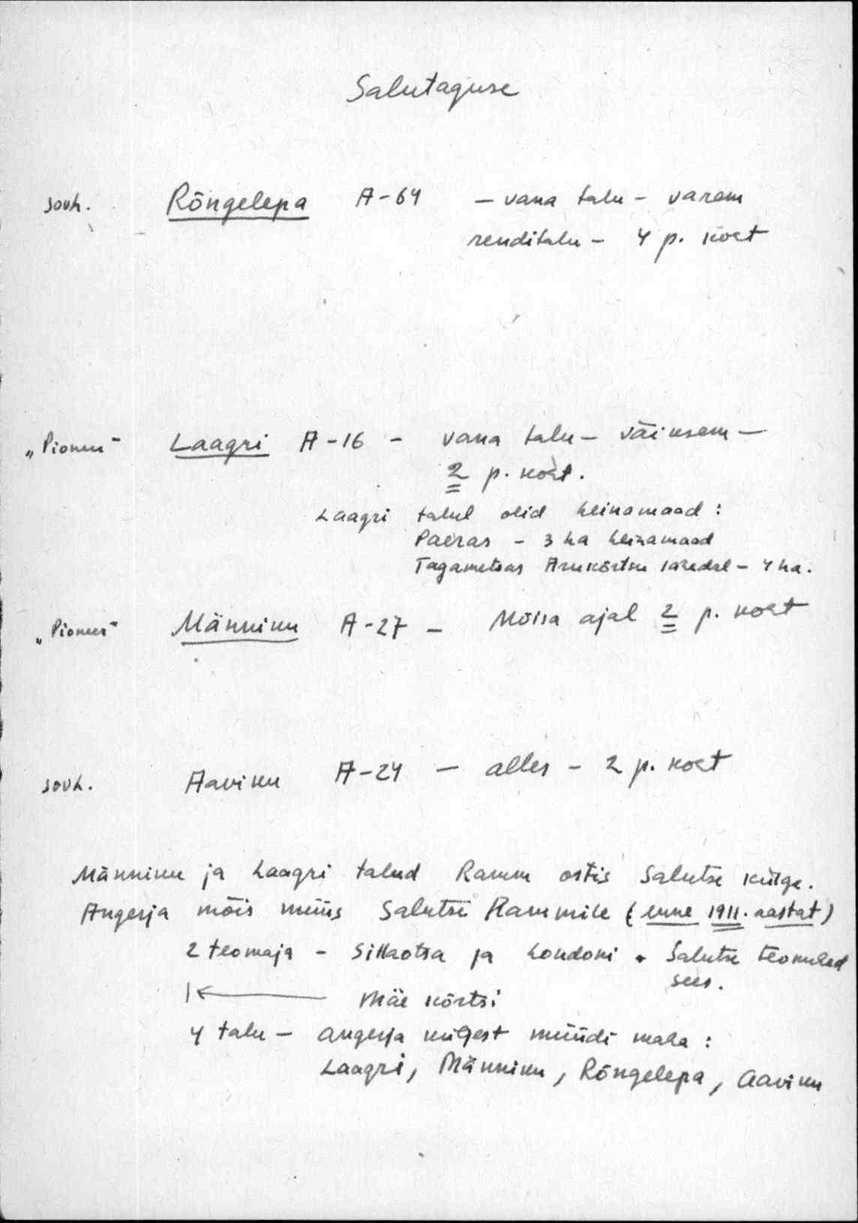 Salutaguse
sovh. Rõngelepa A-64 – vana talu – varem
renditalu – 4 p. koht
"Pioneer" Laagri A-16 – vana talu – väiksem –
2 p. koht.
Laagri talul olid heinamaad:
Paeras – 3 ha heinamaad
Tagametsas Arukõrtsu – 4 ha.
"Pioneer" Männiku A-27 – Mõisa ajal 2 p. koht
sovh. Aaviku A-24 – alles – 2 p. koht
Männiku ja Laagri talud Ramm ostis Salutse külge.
Angerja mõis müüs Salutse Rammile (enne 1911. aastat)
2 teomaja – Sillaotsa ja Londoni • Salutse teomehed
sees.
Mäe kõrtsi
4 talu – Angerja küljest müüdi maha:
Laagri, Männiku, Rõngelepa, Aaviku